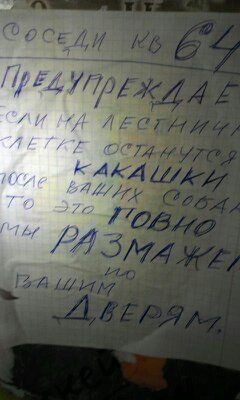 СОСЕДИ КВ 64
ПРЕДУПРЕЖДАЕ
ЕСЛИ НА ЛЕСТНИЧН
КЛЕТКЕ ОСТАНУТСЯ
КАКАШКИ
ПОСЛЕ ВАШИХ СОБАК
ТО ЭТО ГОВНО
МЫ РАЗМАЖЕМ
ПО
ВАШИМ
ДВЕРЯМ.